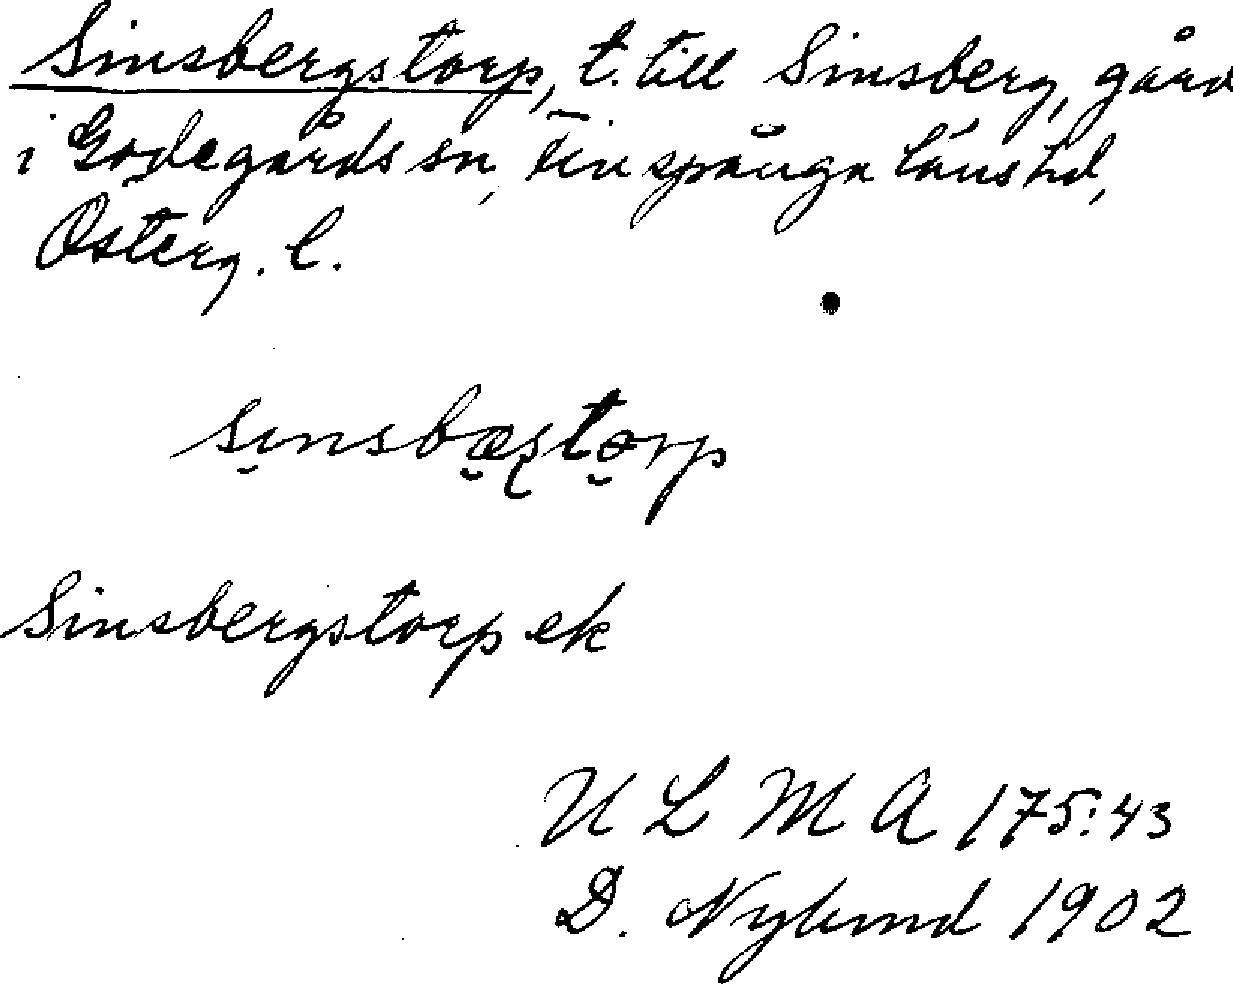 Sinsbergstorp, t. till Sinsberg, gård
i Godegårds sn, Finspånga läns hd,
Österg. l.
sınsbæʂtorp
Sinsbergstorp ek
U L M A 175:43
D. Nylund 1902